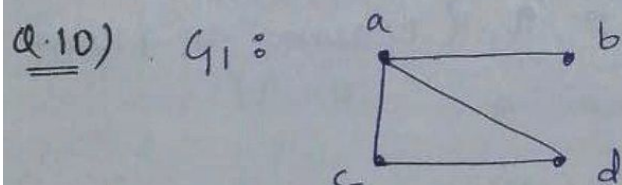 Q.10) . G1 :
a
b
c
d